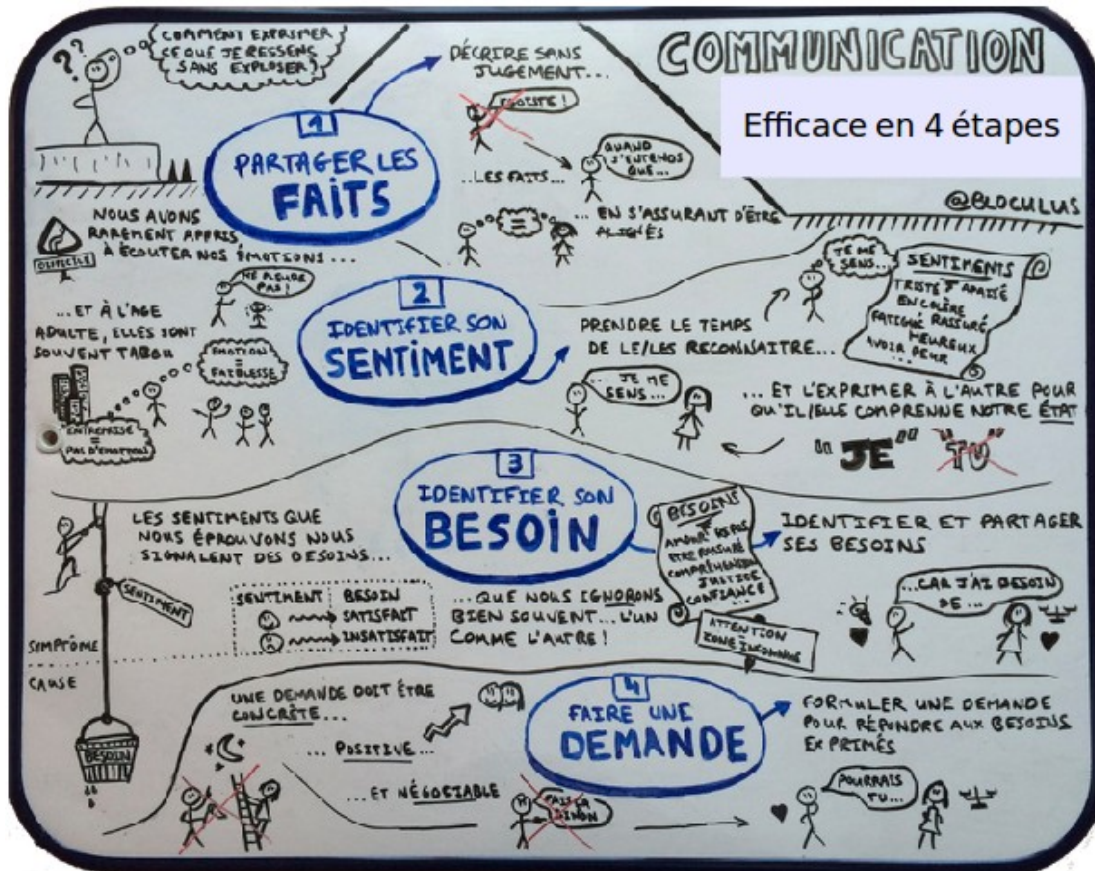 COMMENT EXPRIMER
CE QUE JE RESSENS
SANS EXPLOSER?
??
COMMUNICATION
Efficace en 4 étapes
@BLOCULUS
1
PARTAGER LES
FAITS
DÉCRIRE SANS
JUGEMENT...
EGOISTE!
...LES FAITS...
QUAND
J'ENTENDS
QUE...
=
... EN S'ASSURANT D'ÊTRE
ALIGNÉS
NOUS AVONS
RAREMENT APPRIS
À ÉCOUTER NOS ÉMOTIONS...
DIFFICILE
...ET À L'AGE
ADULTE, ELLES SONT
SOUVENT TABOU
NE PLEURE
PAS!
EMOTION
=
FAIBLESSE
ENTREPRISE
=
PAS D'EMOTIONS
2
IDENTIFIER SON
SENTIMENT
PRENDRE LE TEMPS
DE LE/LES RECONNAITRE...
JE ME
SENS...
SENTIMENTS
TRISTE APAISÉ
EN COLÈRE
FATIGUÉ RASSURÉ
HEUREUX
AVOIR PEUR
...
... JE ME
SENS...
... ET L'EXPRIMER À L'AUTRE POUR
QU'IL/ELLE COMPRENNE NOTRE ÉTAT
"JE" "TU"
3
IDENTIFIER SON
BESOIN
LES SENTIMENTS QUE
NOUS ÉPROUVONS NOUS
SIGNALENT DES BESOINS...
SENTIMENT
SENTIMENT BESOIN
SATISFAIT
INSATISFAIT
...QUE NOUS IGNORONS
BIEN SOUVENT... L'UN
COMME L'AUTRE!
BESOINS
AMOUR REPOS
ETRE RASSURÉ
COMPRÉHENSION
JUSTICE
CONFIANCE
...
ATTENTION
ZONE INCONNUE
IDENTIFIER ET PARTAGER
SES BESOINS
...CAR J'AI BESOIN
DE...
SYMPTÔME
CAUSE
BESOIN
4
FAIRE UNE
DEMANDE
UNE DEMANDE DOIT ÊTRE
CONCRÈTE...
... POSITIVE...
...ET NÉGOCIABLE
FAIS ÇA
SINON
FORMULER UNE DEMANDE
POUR RÉPONDRE AUX BESOINS
EXPRIMÉS
POURRAIS
TU...